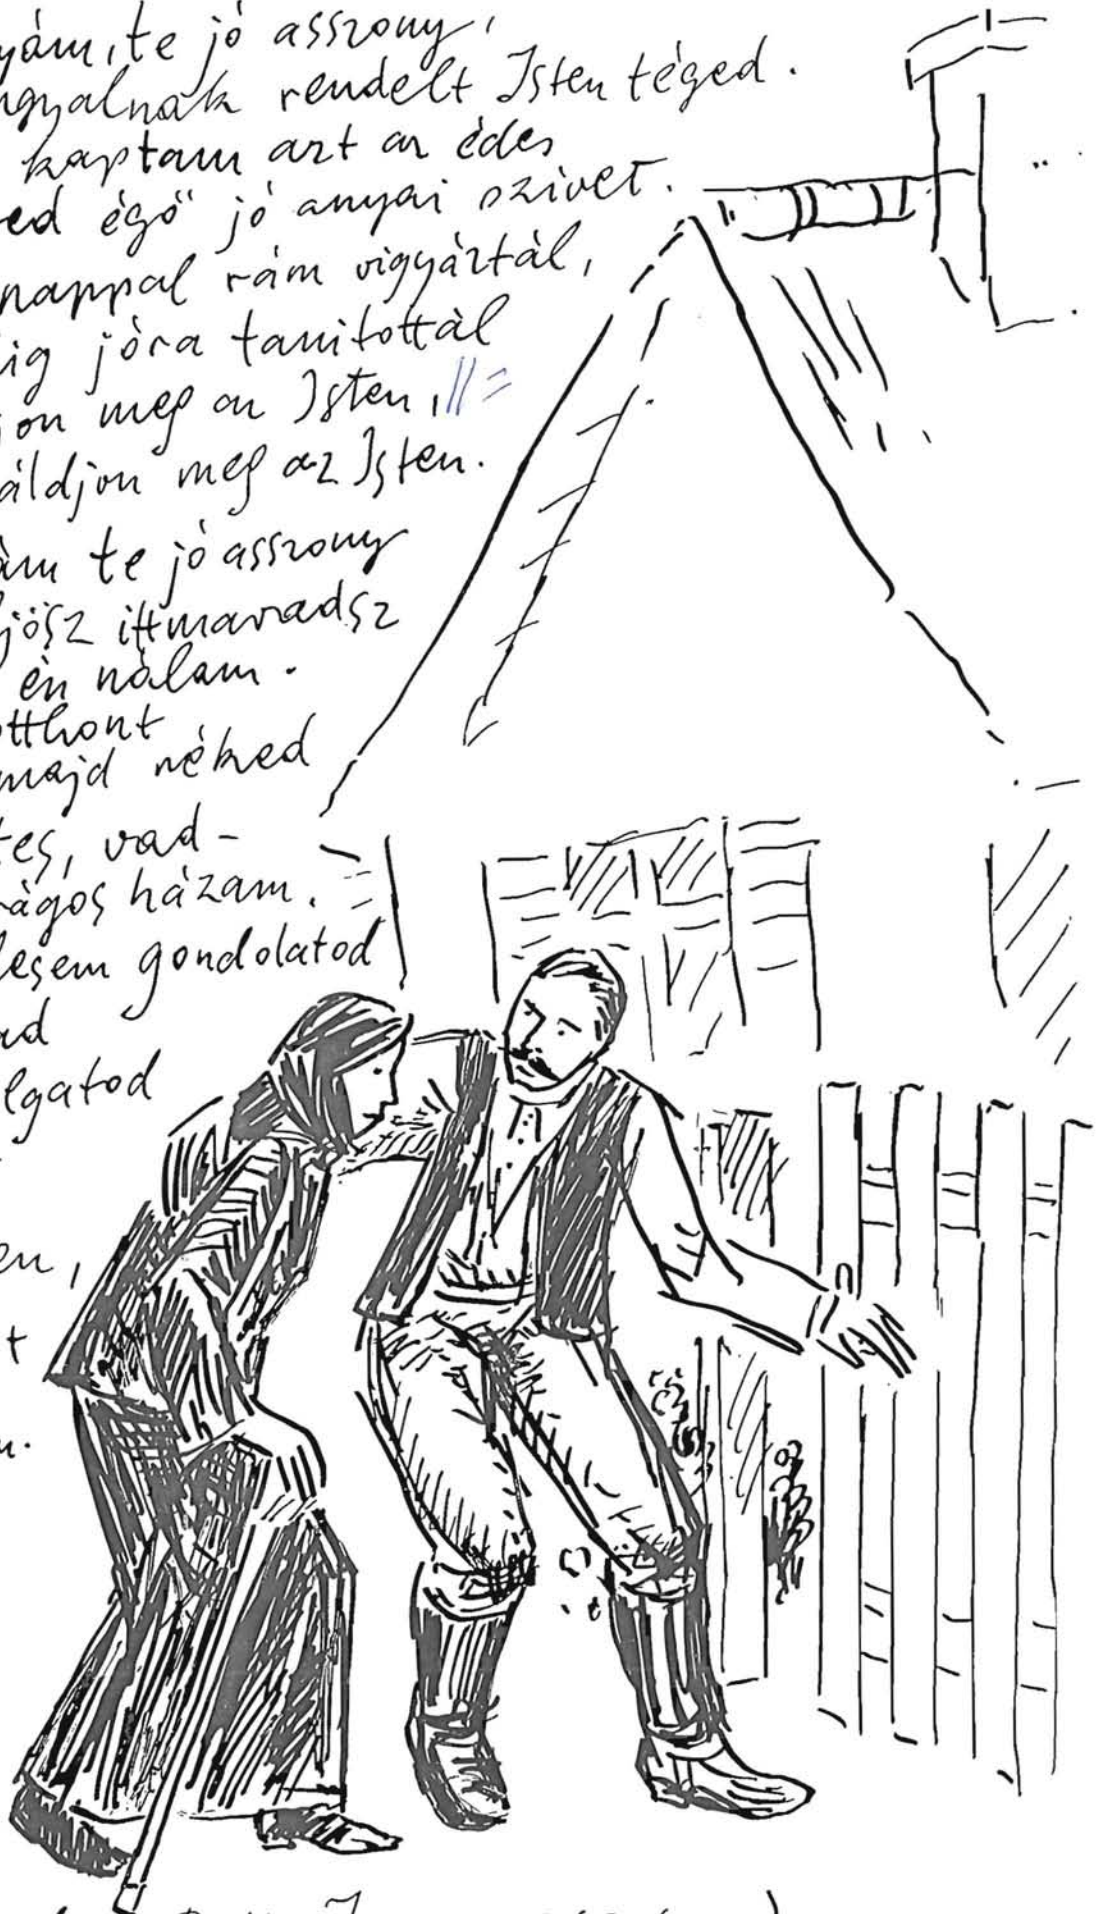 yám, te jó asszony,
ngyalnak rendelt Isten téged.
kaptam azt az édes
ed égő jó anyai szivet.
nappal rám vigyáztál,
ig jóra tanitottál
jon meg az Isten,
áldjon meg az Isten.
ám te jó asszony
jösz ittmaradsz
én nálam.
otthont
majd néked
tes, vad-
rágos házam.
lesem gondolatod
ad
lgatod
en,
t